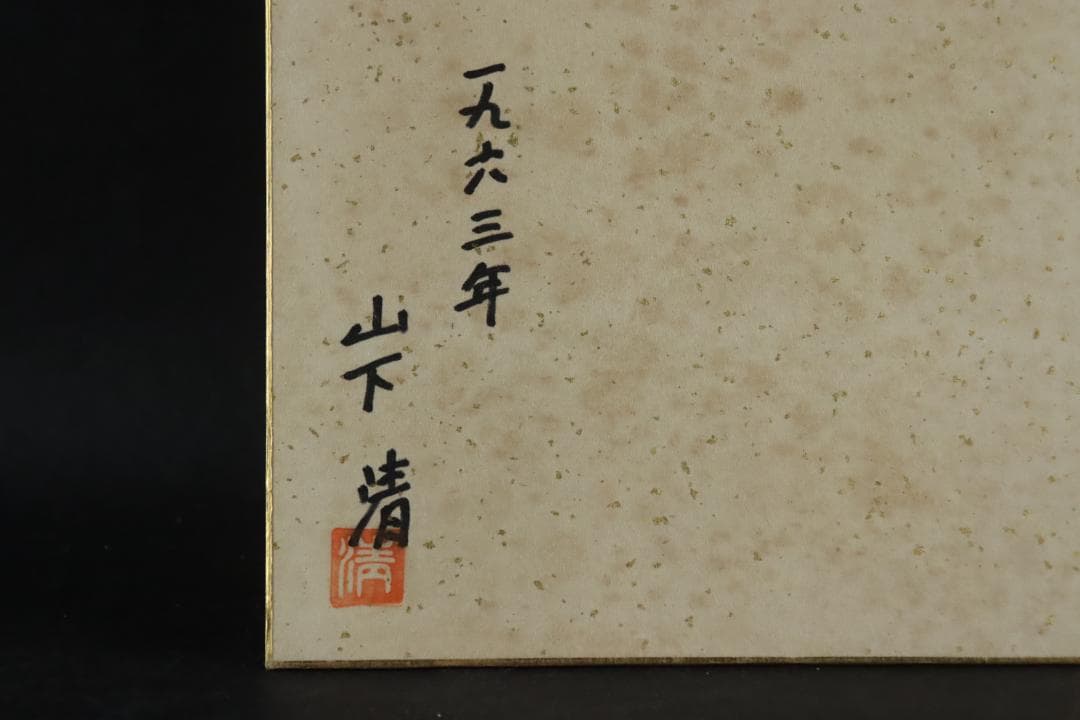 一九六三年
山下清
清